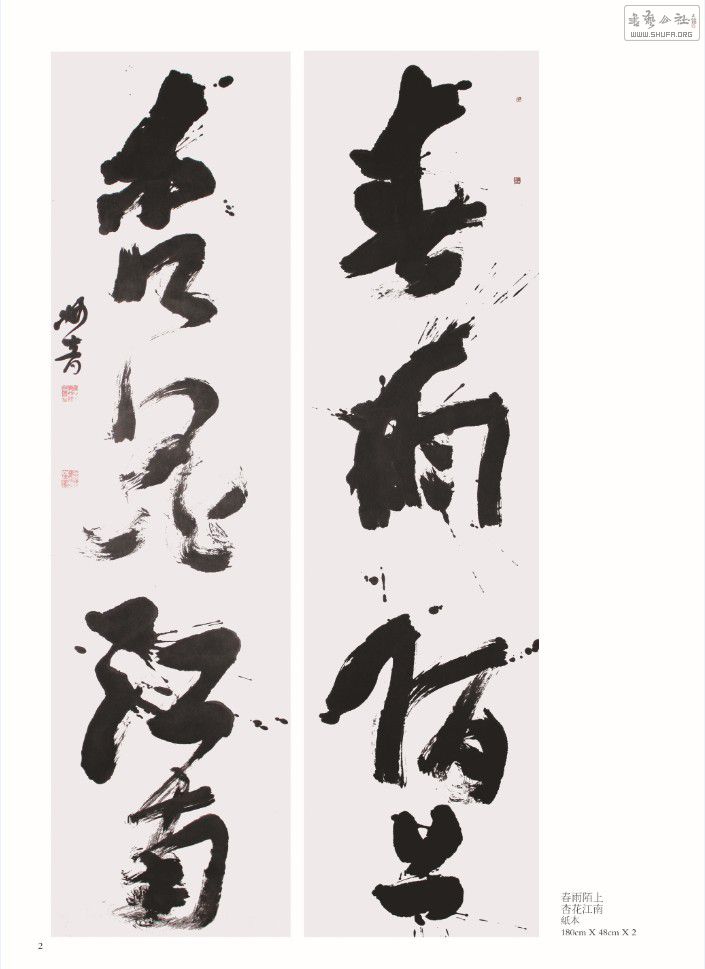 書藝公社
WWW.SHUFA.ORG
春雨陌上
杏花江南
春雨陌上
杏花江南
紙本
180cm X 48cm X 2
2